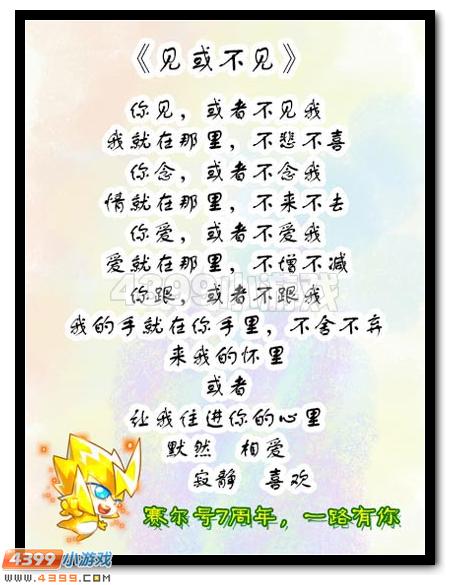 《见或不见》
你见，或者不见我
我就在那里，不悲不喜
你念，或者不念我
情就在那里，不来不去
你爱，或者不爱我
爱就在那里，不增不减
4399小游戏
你跟，或者不跟我
我的手就在你手里，不舍不弃
来我的怀里
或者
让我住进你的心里
默然 相爱
寂静 喜欢
赛尔号7周年，一路有你
4399小游戏
www.4399.com